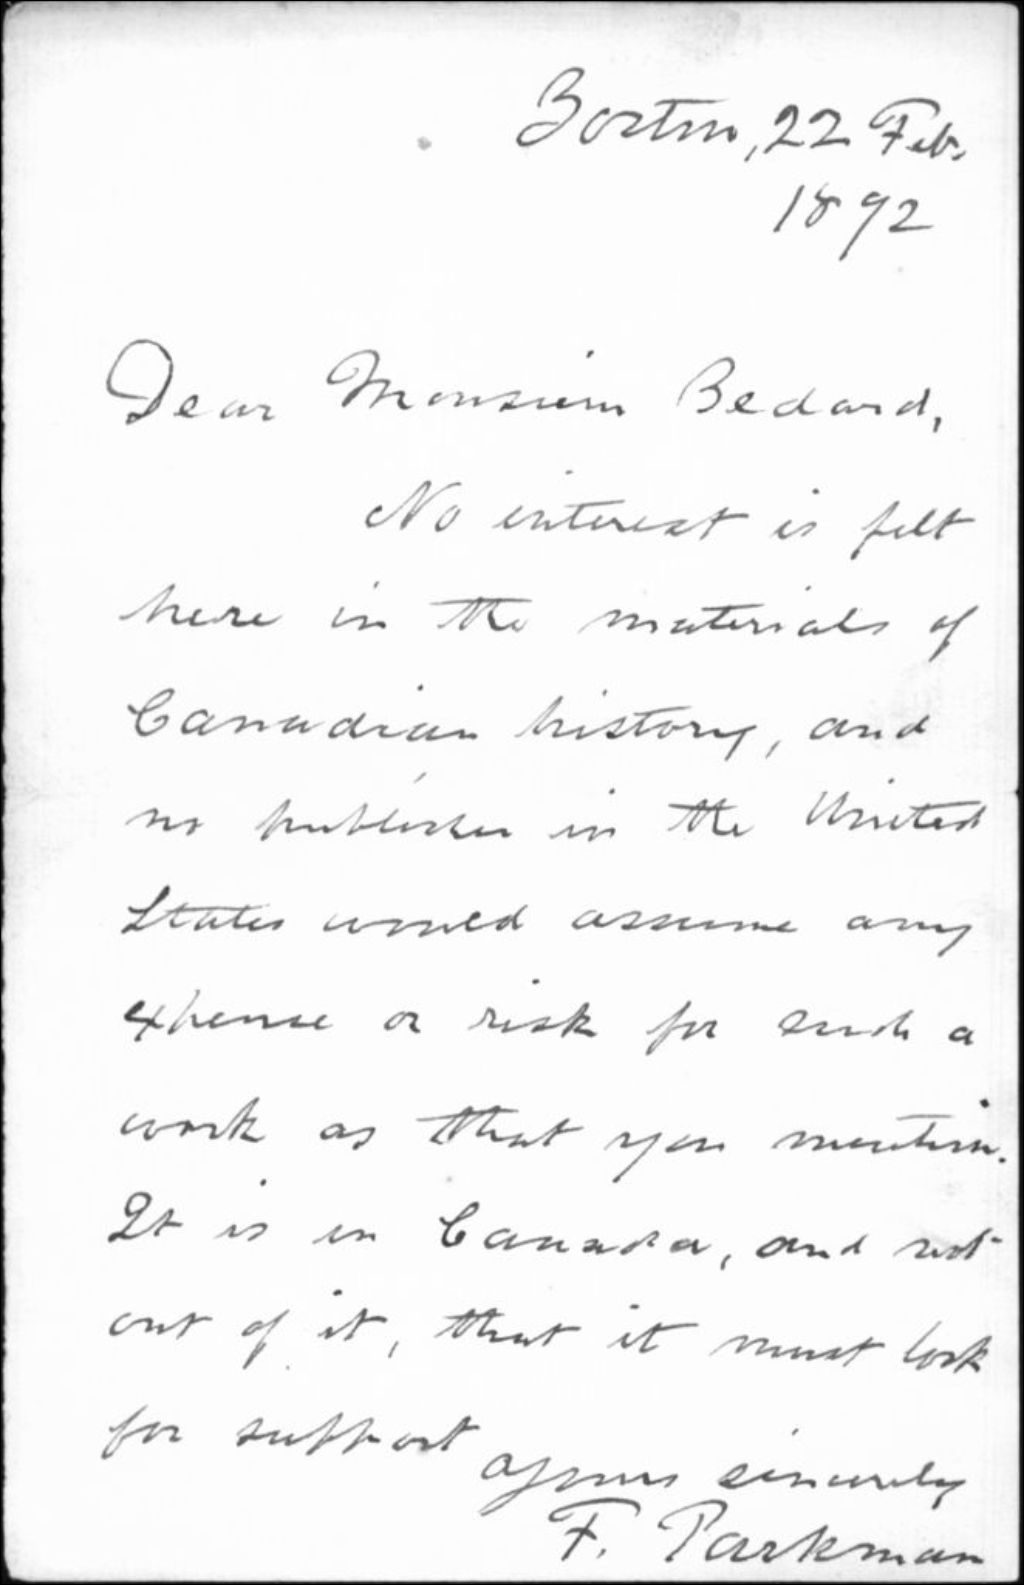 Boston, 22 Feb.
1892
Dear Monsieur Bedard,
No interest is felt
here in the materials of
Canadian history, and
no publisher in the United
States would assume any
expense or risk for such a
work as that you mention.
It is in Canada, and not
out of it, that it must look
for support
Yours sincerely
F. Parkman